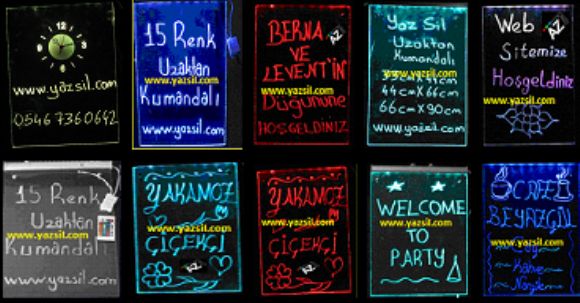 12
9 3
6
www.yazsil.com
0546 736 0642
15 Renk
Uzaktan
www.yazsil.com
Kumandalı
www.yazsil.com
BERNA
VE
LEVENT'İN
www.yazsil.com
Düğününe
HOŞGELDİNİZ
Yaz Sil
Uzaktan
Kumandalı
www.yazsil.com
44cm X 66cm
66cm X 90cm
www.yazsil.com
Web
Sitemize
Hoşgeldiniz
www.yazsil.com
15 Renk
Uzaktan
www.yazsil.com
Kumandalı
www.yazsil.com
YAKAMOZ
www.yazsil.com
ÇİÇEKÇİ
YAKAMOZ
www.yazsil.com
ÇİÇEKÇİ
WELCOME
www.yazsil.com
TO
PARTY
CAFE
BEYAZGÜL
www.yazsil.com
Kahve
Nargile